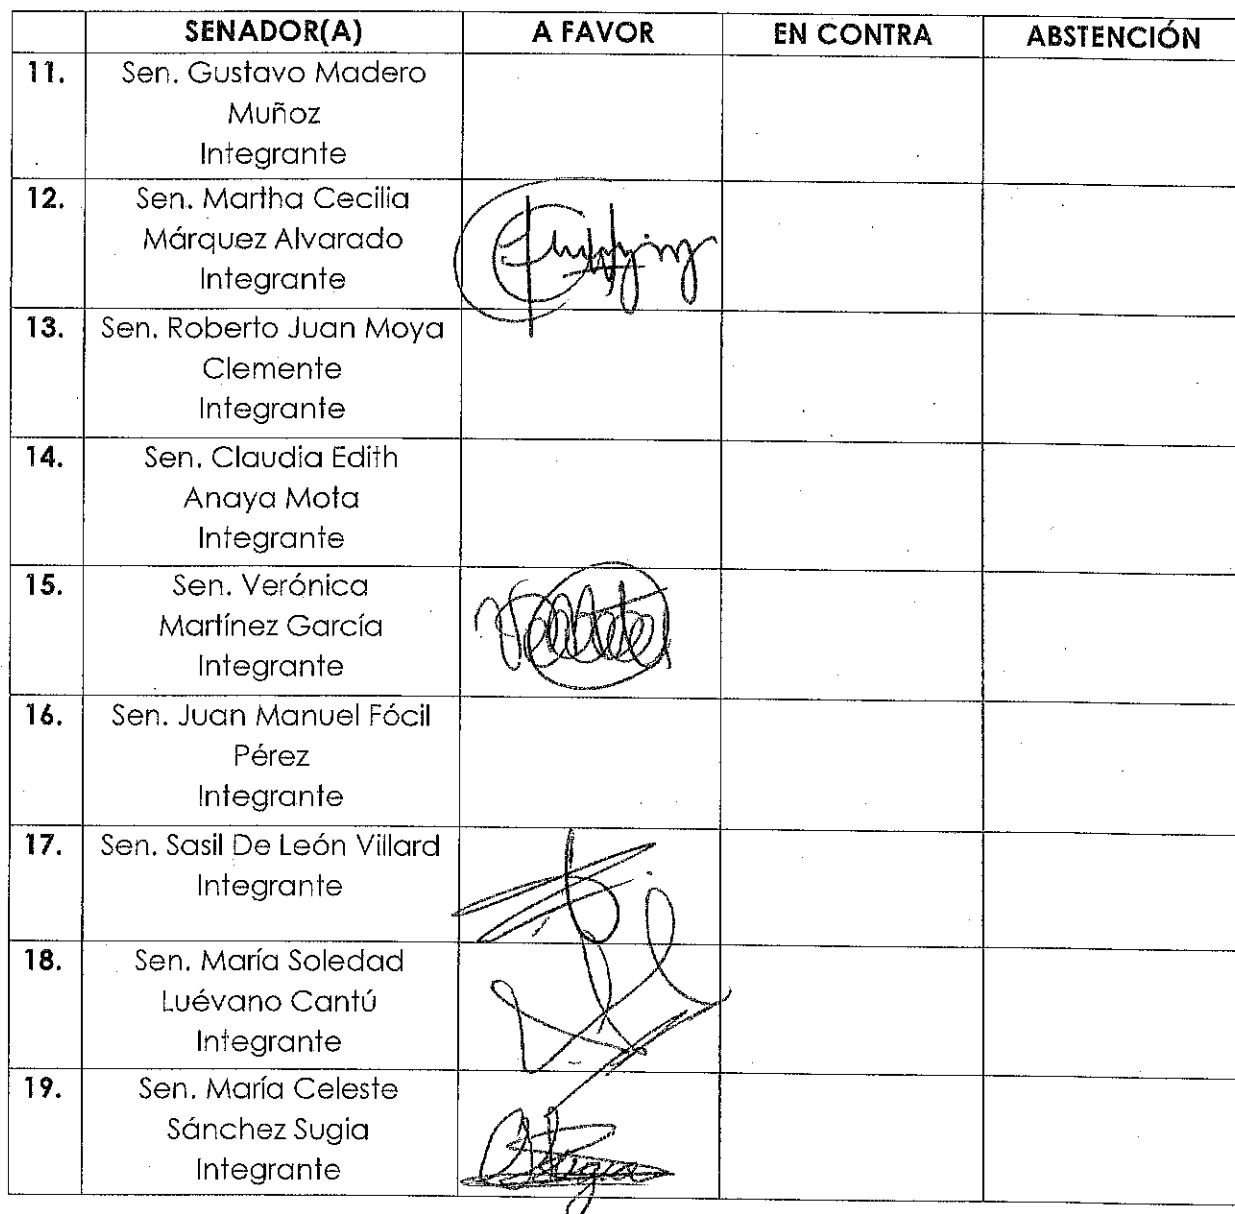 SENADOR(A) A FAVOR EN CONTRA ABSTENCIÓN
11. Sen. Gustavo Madero
Muñoz
Integrante
12. Sen. Martha Cecilia
Márquez Alvarado
Integrante
13. Sen. Roberto Juan Moya
Clemente
Integrante
14. Sen. Claudia Edith
Anaya Mota
Integrante
15. Sen. Verónica
Martínez García
Integrante
16. Sen. Juan Manuel Fócil
Pérez
Integrante
17. Sen. Sasil De León Villard
Integrante
18. Sen. María Soledad
Luévano Cantú
Integrante
19. Sen. María Celeste
Sánchez Sugia
Integrante